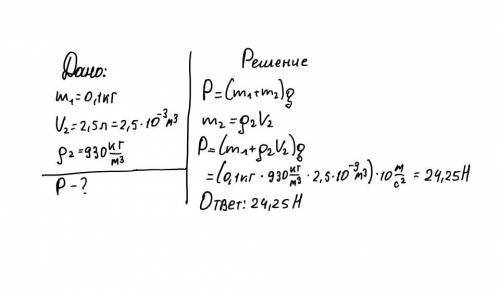 Дано:
m₁=0,1кг
V₂=2,5л=2,5·10⁻³м³
ρ₂=930 кг/м³
P-?
Решение
P=(m₁+m₂)g
m₂=ρ₂V₂
P=(m₁+ρ₂V₂)g
=(0,1кг·930 кг/м³·2,5·10⁻³м³)·10 м/с²=24,25Н
Ответ: 24,25Н